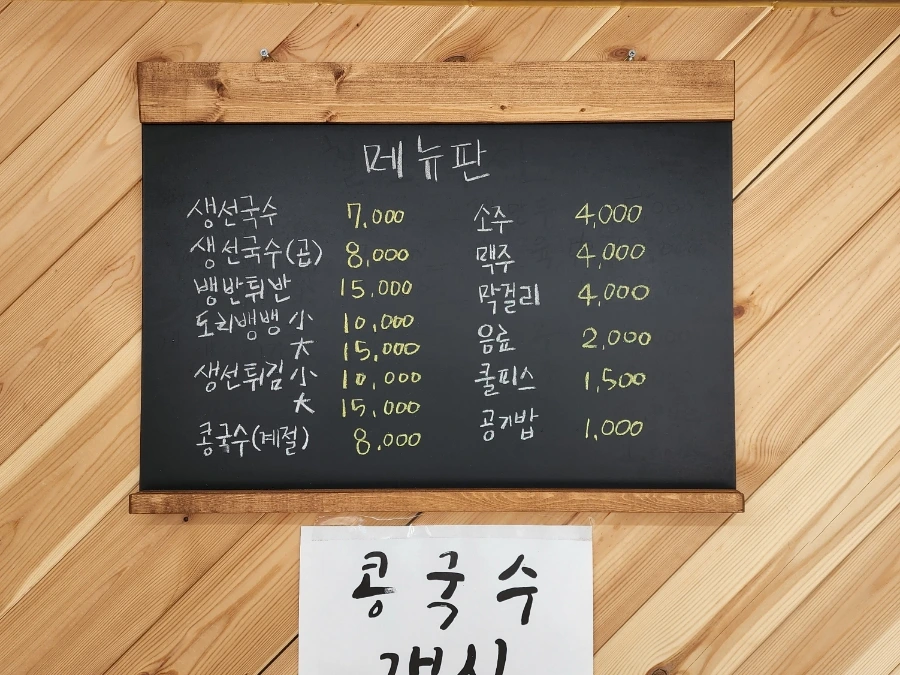 메뉴판
생선국수 7,000
생선국수(곱) 8,000
뱅반튀반 15,000
도리뱅뱅 小 10,000
大 15,000
생선튀김 小 10,000
大 15,000
콩국수(계절) 8,000
소주 4,000
맥주 4,000
막걸리 4,000
음료 2,000
쿨피스 1,500
공기밥 1,000
콩국수
개시